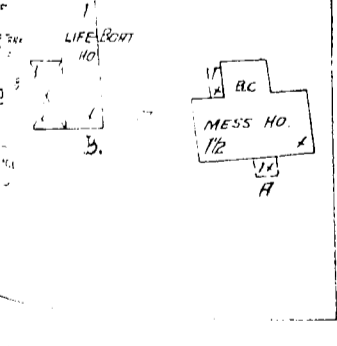 1
LIFE BOAT
HO
B.
1
x
B.C
MESS HO.
1½
x
1x
A